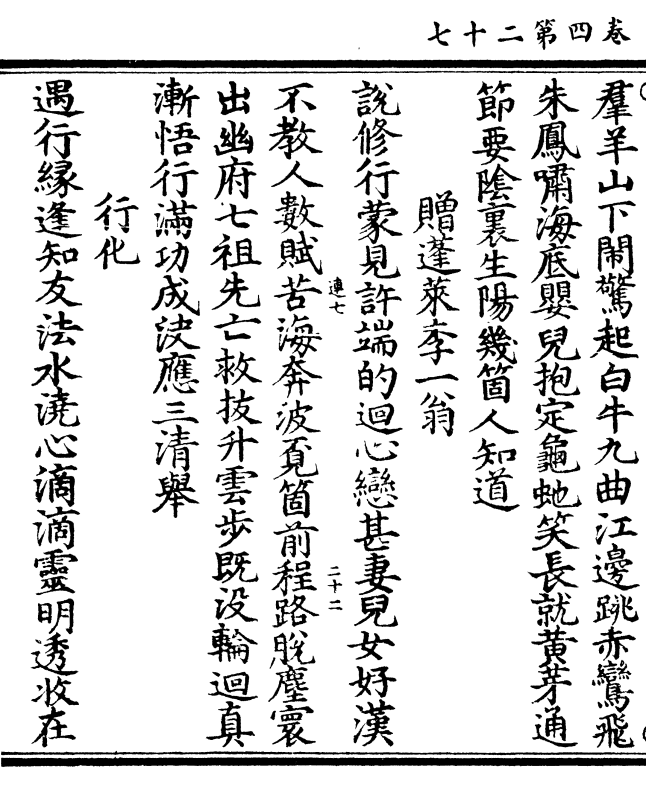 卷四第二十七
羣羊山下鬧驚起白牛九曲江邊跳赤鸞飛
朱鳳嘯海底嬰兒抱定龜虵笑長就黃芽通
節要陰裏生陽幾箇人知道
贈蓬萊李一翁
說修行蒙見許端的迴心戀甚妻兒女好漢
連七
二十二
不教人數賦苦海奔波覔箇前程路脫塵寰
出幽府七祖先亡救拔升雲步既没輪迴真
漸悟行滿功成決應三清舉
行化
遇行緣逢知友法水澆心滴滴靈明透收在